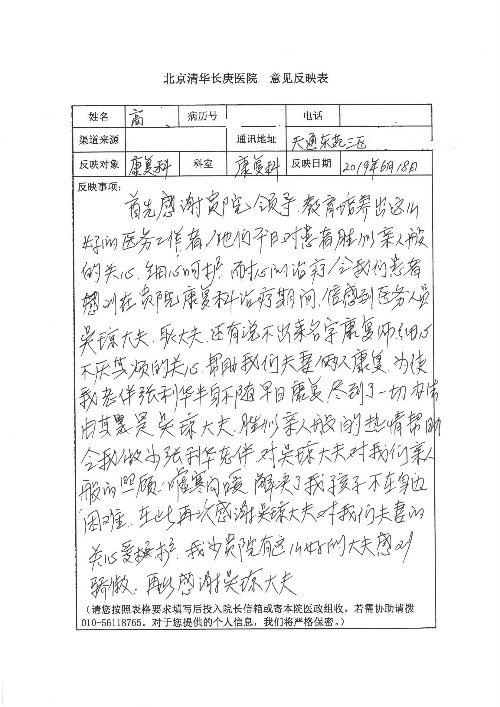 北京清华长庚医院 意见反映表
姓名 高 病历号 电话
渠道来源 通讯地址 天通东苑三区
反映对象 康复科 科室 康复科 反映日期 2019年6月18日
反映事项:
首先感谢贵院领导教育培养出这么
好的医务工作者,他们平日对患者胜似亲人般
的关心、细心呵护、耐心的治疗,令我们患者
感到在贵院康复科治疗期间,倍感到医务人员
吴琼大夫、耿大夫、还有说不出来名字康复师细心
不厌其烦的关心、帮助我们夫妻俩人康复,为使
我老伴张利华半身不随早日康复,尽到了一切
尤其是吴琼大夫,胜似亲人般的热情帮助
令我做为张利华老伴,对吴琼大夫对我们亲人
般的照顾,嘘寒问暖,解决了我孩子不在身边
困难,在此再次感谢吴琼大夫对我们夫妻的
关心爱护,我为贵院有这么好的大夫感到
骄傲,再此感谢吴琼大夫
(请您按照表格要求填写后投入院长信箱或寄本院医政组收,若需协助请拨
010-56118765。对于您提供的个人信息,我们将严格保密。)